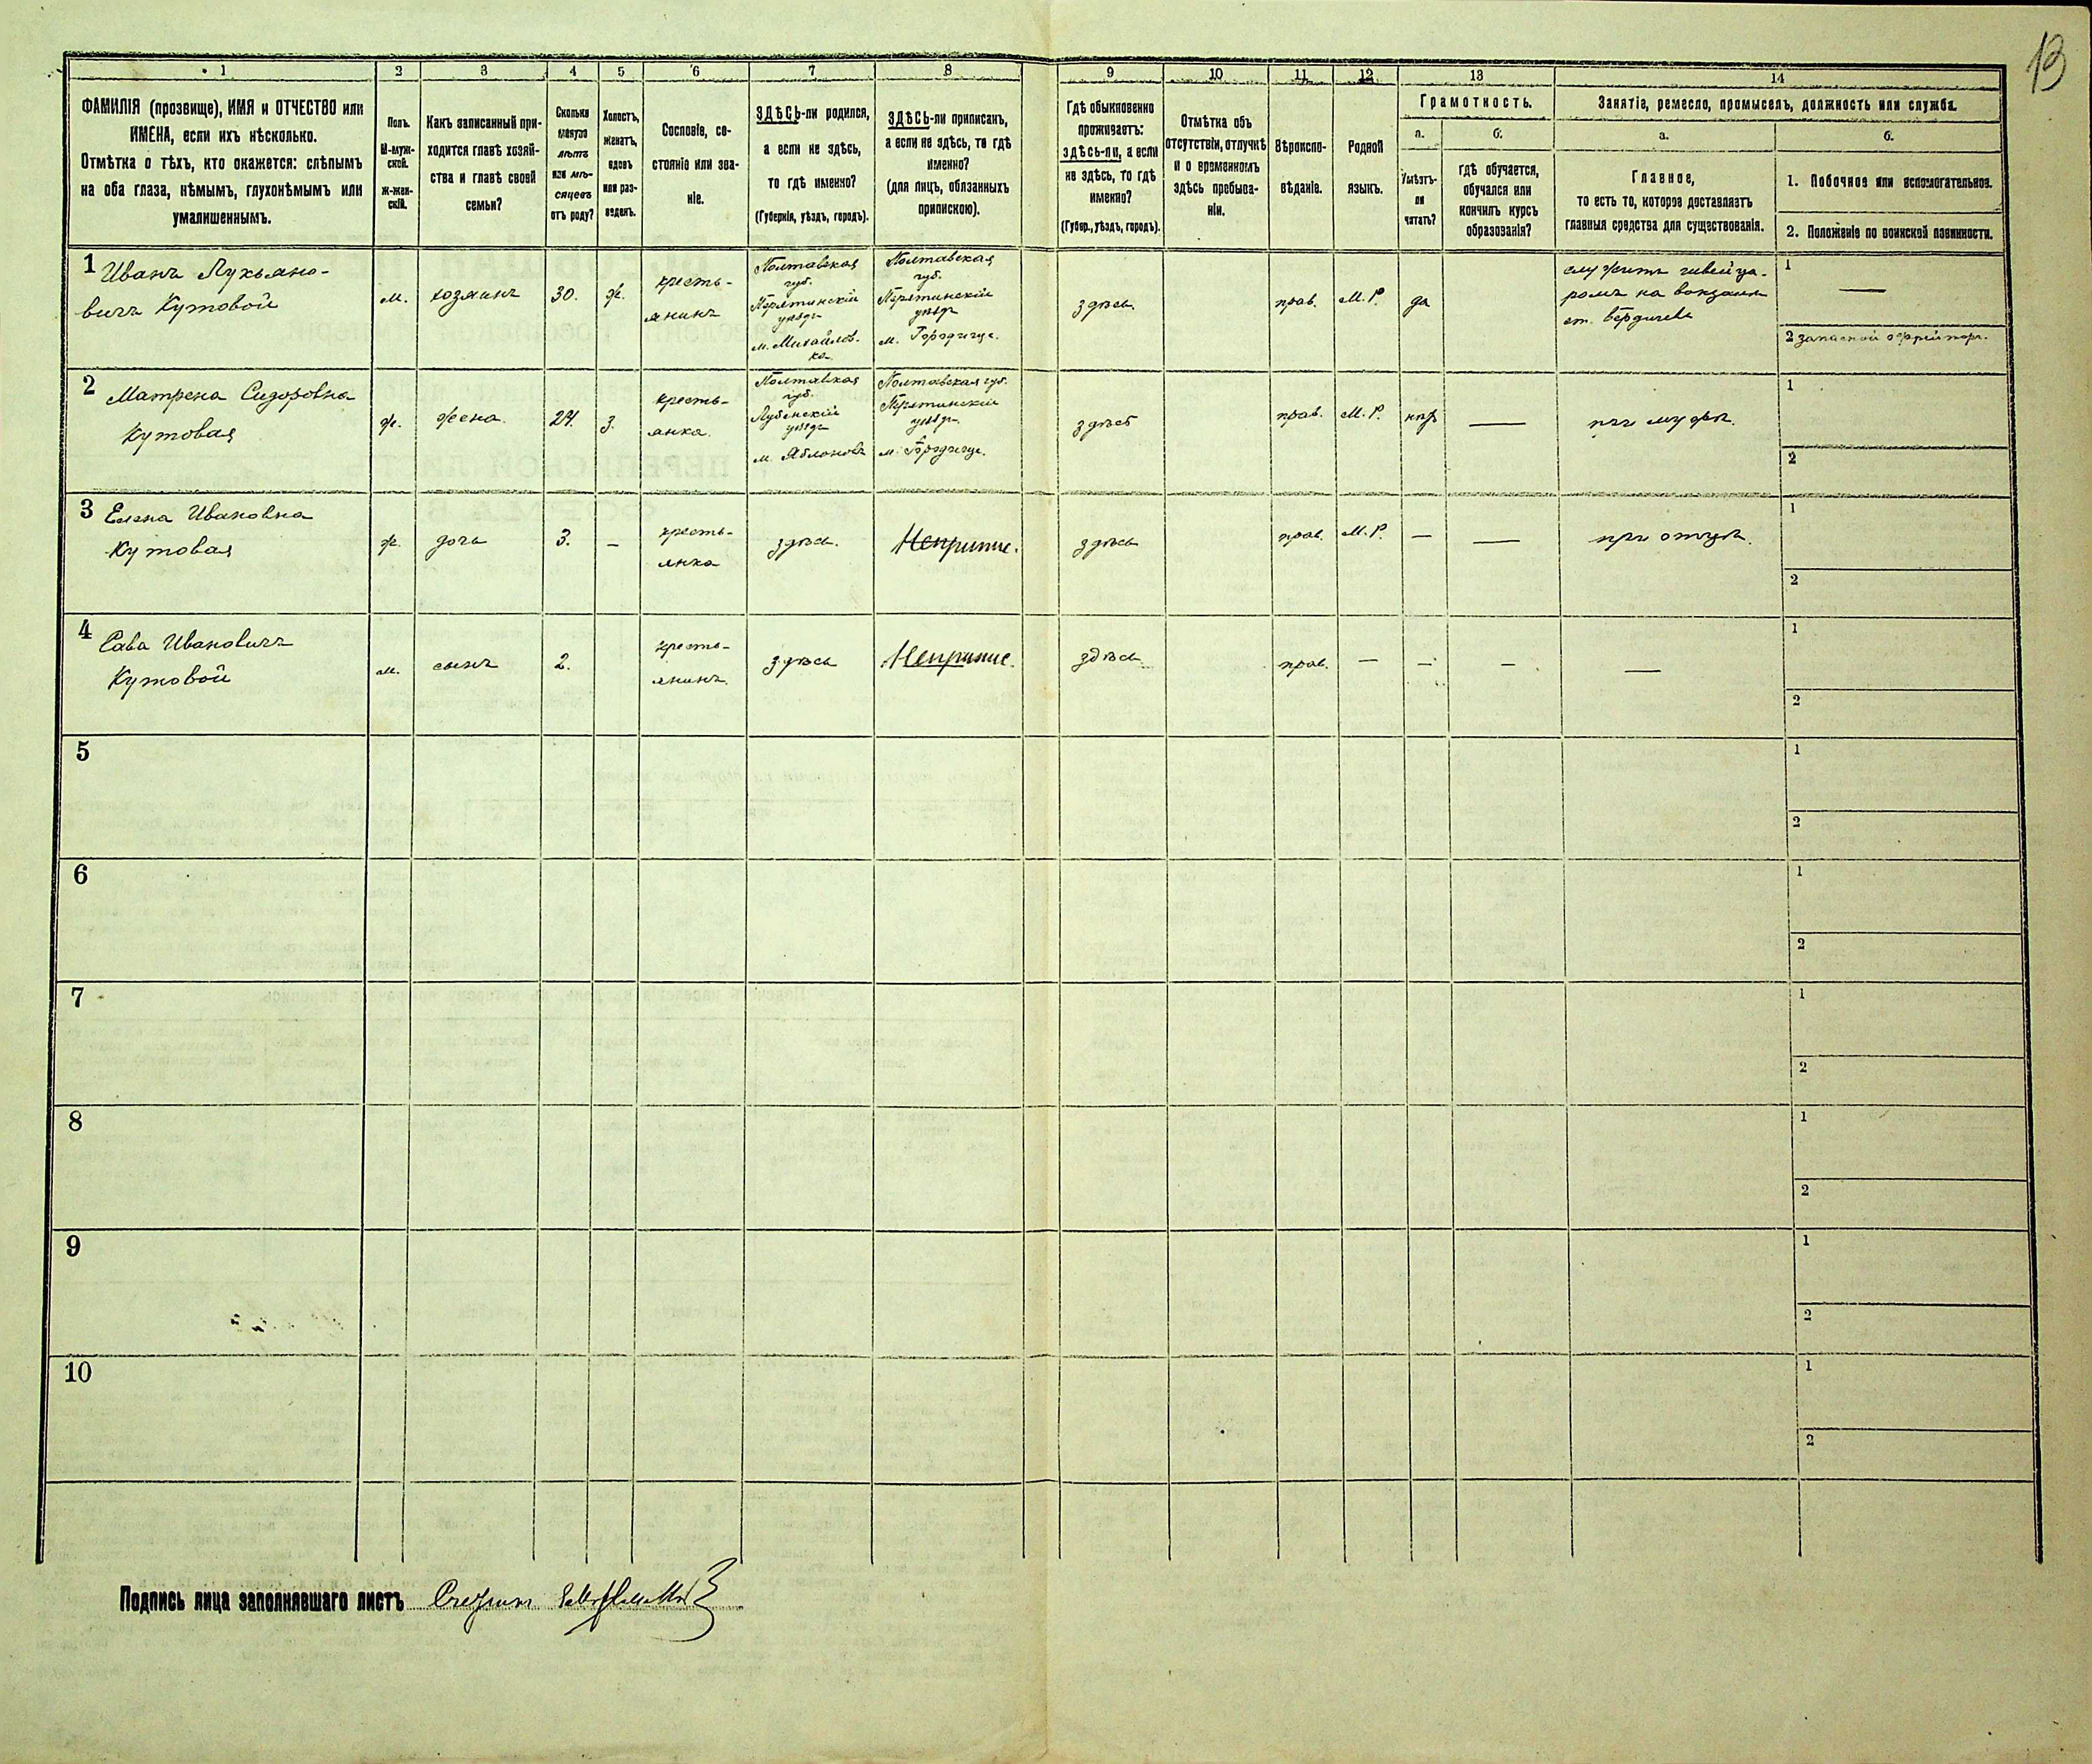 13
1 2 3 4 5 6 7 8 9 10 11 12 13 14
ФАМИЛІЯ (прозвище), ИМЯ и ОТЧЕСТВО или
ИМЕНА, если ихъ нѣсколько.
Отмѣтка о тѣхъ, кто окажется: слѣпымъ
на оба глаза, нѣмымъ, глухонѣмымъ или
умалишеннымъ.
Полъ.
М-муж-
ской.
Ж-жен-
скій.
Какъ записанный при-
ходится главѣ хозяй-
ства и главѣ своей
семьи?
Сколько
минуло
лѣтъ
или мѣ-
сяцевъ
отъ роду?
Холостъ,
женатъ,
вдовъ
или раз-
веденъ.
Сословіе, со-
стояніе или зва-
ніе.
ЗДѢСЬ-ли родился,
а если не здѣсь,
то гдѣ именно?
(Губернія, уѣздъ, городъ).
ЗДѢСЬ-ли приписанъ,
а если не здѣсь, то гдѣ
именно?
(для лицъ, обязанныхъ
припискою).
Гдѣ обыкновенно
проживаетъ:
здѣсь-ли, а если
не здѣсь, то гдѣ
именно?
(Губер., уѣздъ, городъ).
Отмѣтка объ
отсутствіи, отлучкѣ
и о временномъ
здѣсь пребыва-
ніи.
Вѣроиспо-
вѣданіе.
Родной
языкъ.
Грамотность.
а.
Умѣетъ-
ли
читать?
б.
гдѣ обучается,
обучался или
кончилъ курсъ
образованія?
Занятіе, ремесло, промыселъ, должность или служба.
а.
Главное,
то есть то, которое доставляетъ
главныя средства для существованія.
б.
1. Побочное или вспомогательное.
2. Положеніе по воинской повинности.
1 Иванъ Лукьяно-
вичъ Кутовой
м.
хозяинъ
30.
ж.
кресть-
янинъ
Полтавская
губ.
Пирятинскій
уѣздъ
м. Михайлов-
ка
Полтавская
губ.
Пирятинскій
уѣздъ
м. Городище.
здѣсь.
прав.
М. Р.
да
служитъ швейца-
ромъ на вокзалѣ
ст. Бердичевъ
1 —
2 запасной ефрейторъ.
2 Матрена Сидоровна
Кутовая
ж.
жена.
24.
з.
кресть-
янка.
Полтавская
губ.
Лубенскій
уѣздъ
м. Яблоновъ
Полтавская губ.
Пирятинскій
уѣздъ.
м. Городище.
прав.
М. Р.
—
при мужѣ.
1
2
3 Елена Ивановна
Кутовая
ж.
дочь
3.
—
кресть-
янка
здѣсь.
Неприпис.
здѣсь
прав.
М. Р.
—
—
при отцѣ.
1
2
4 Сава Ивановичъ
Кутовой
м.
сынъ
2.
кресть-
янинъ.
здѣсь
Неприпис.
здѣсь
прав.
—
—
—
—
1
2
5
1
2
6
1
2
7
1
2
8
1
2
9
1
2
10
1
2
Подпись лица заполнявшаго листъ